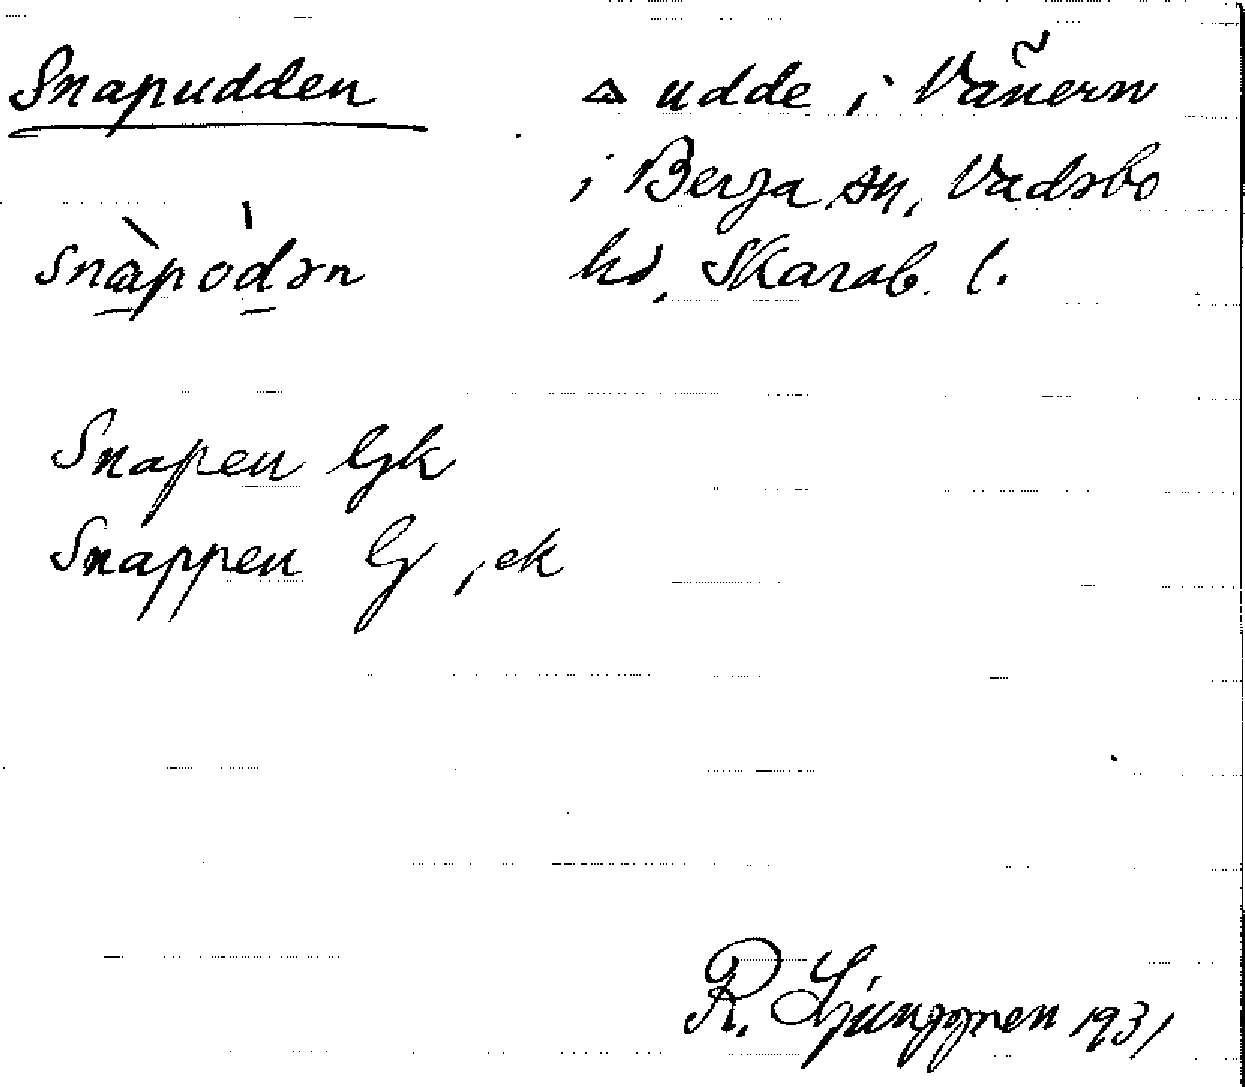 Snapudden
△ udde i Vänern
i Berga sn, Vadsbo
hd, Skarab. l.
snàpódən
Snapen Gk
Snappen G, ek
R. Ljunggren 1931